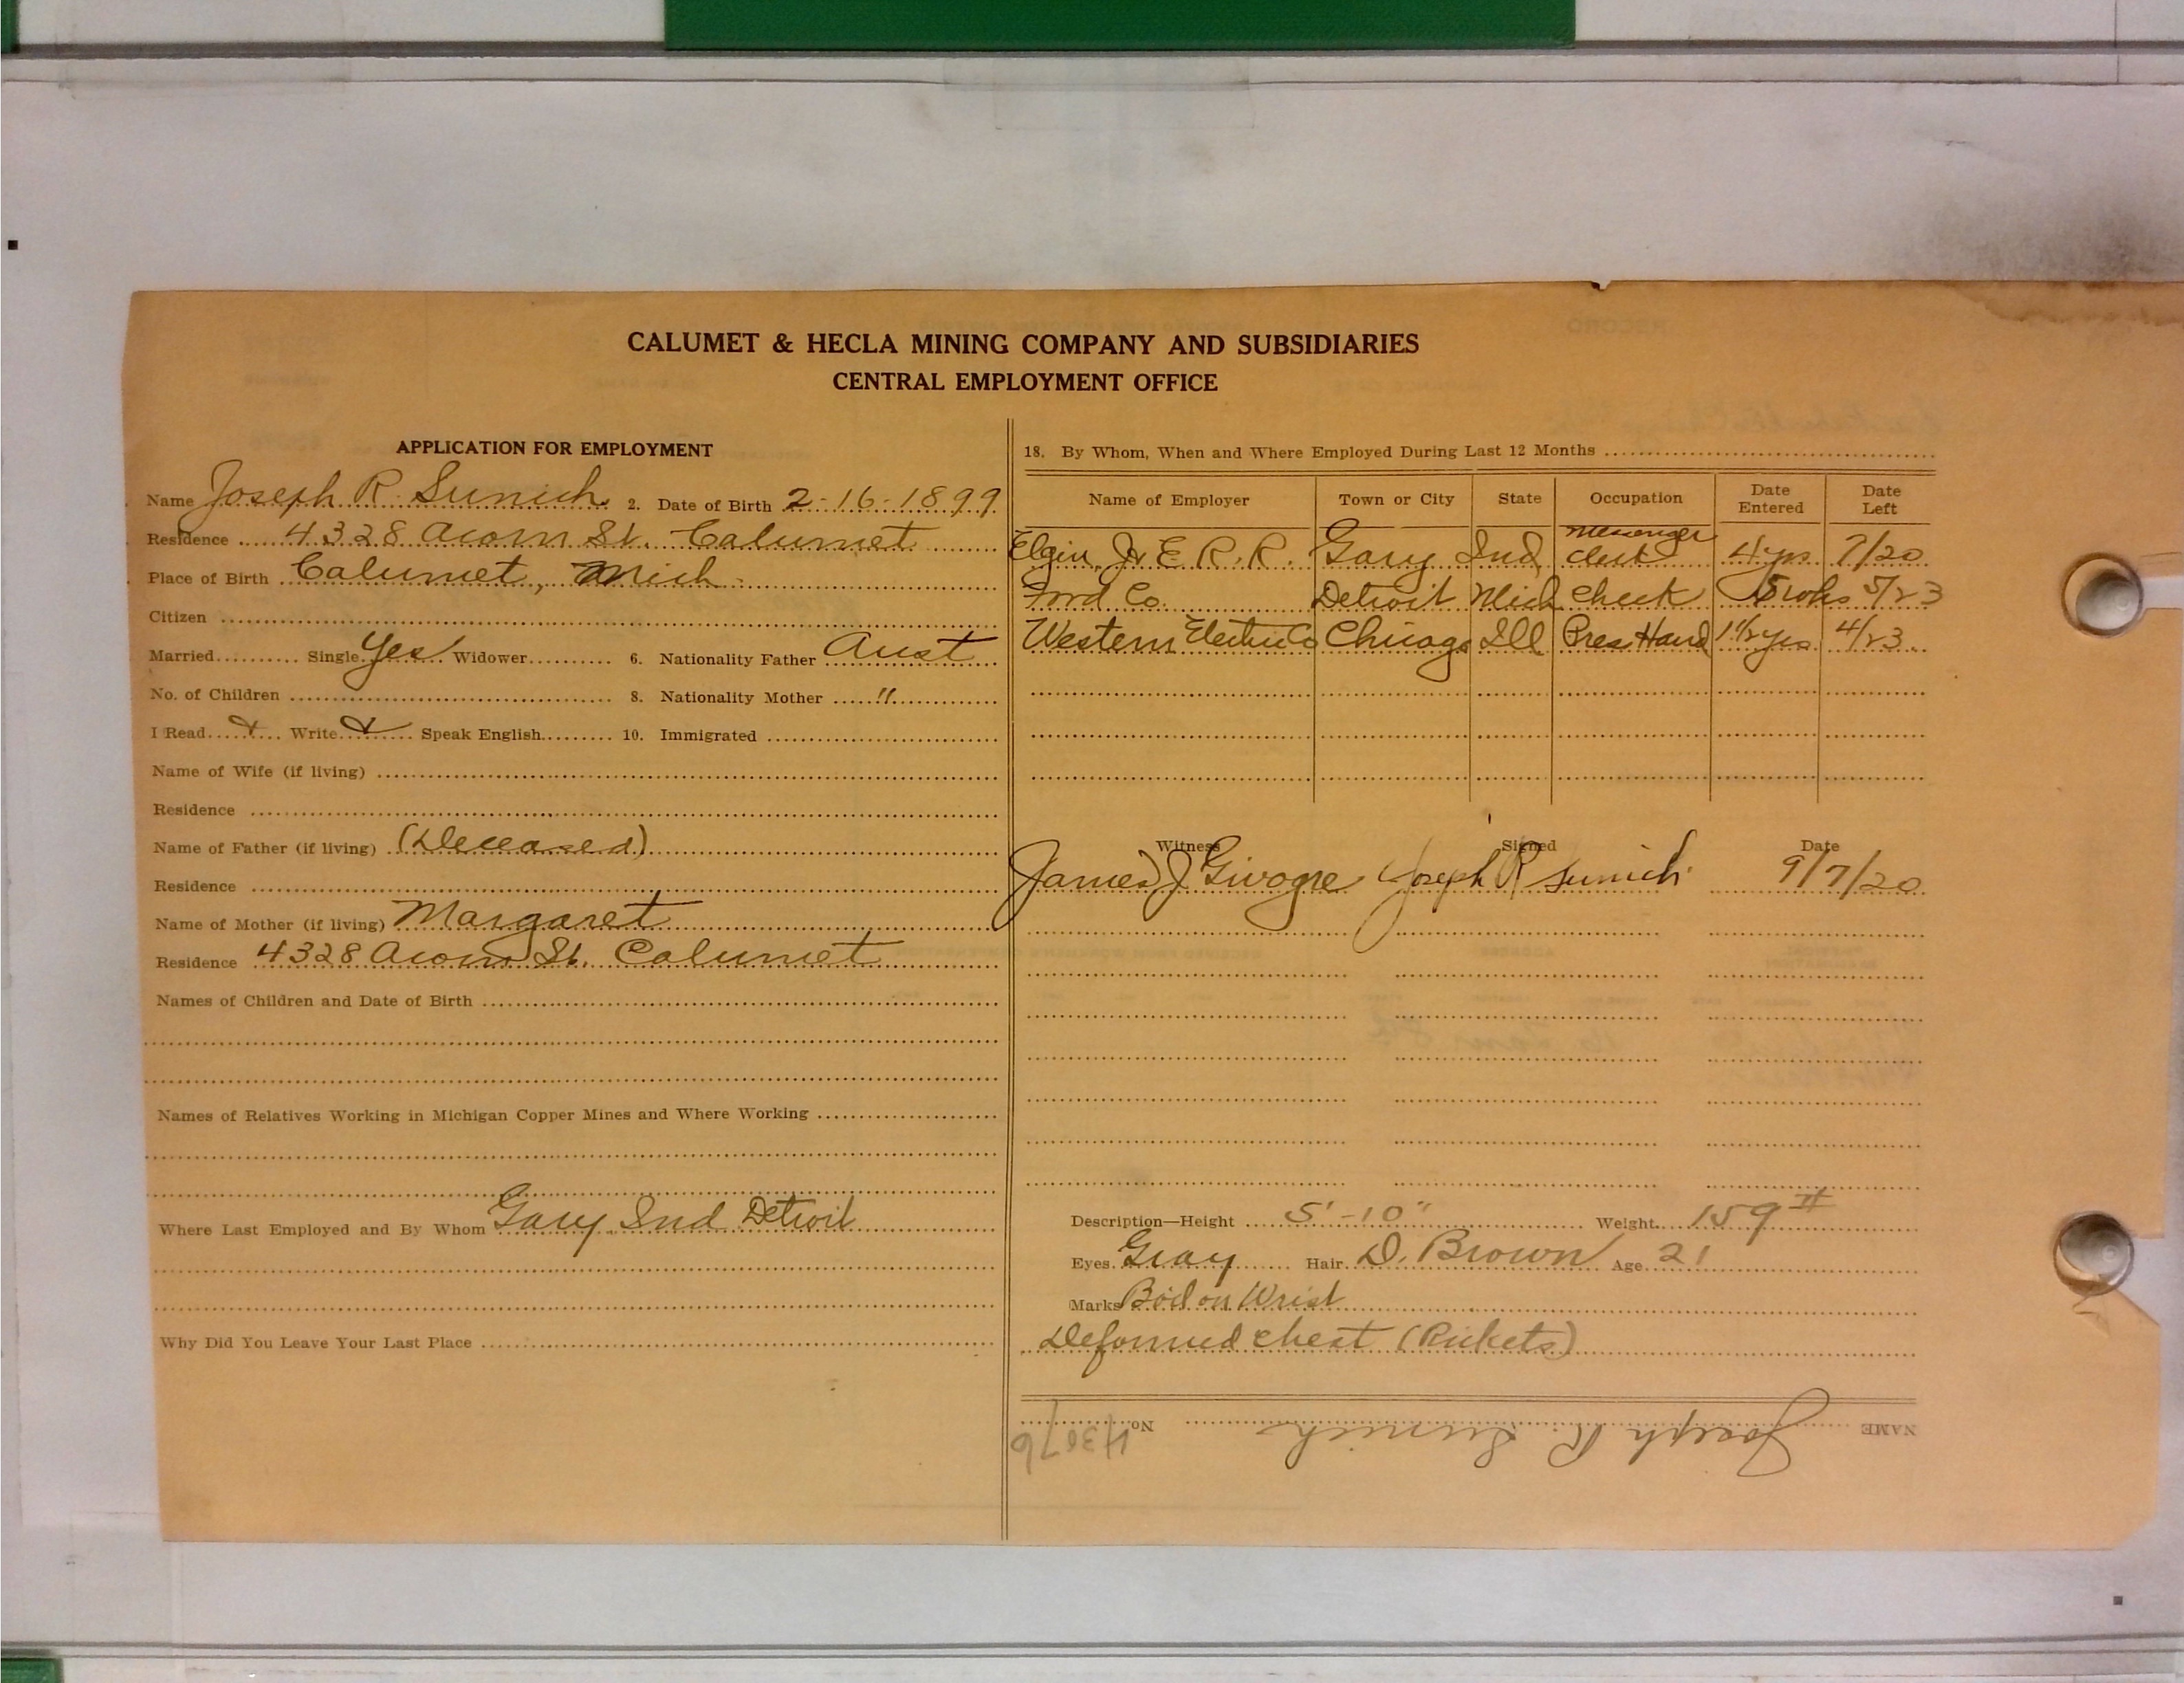 CALUMET & HECLA MINING COMPANY AND SUBSIDIARIES
CENTRAL EMPLOYMENT OFFICE
APPLICATION FOR EMPLOYMENT
Name Joseph R. Sunich 2. Date of Birth 2-16-1899
Residence 4328 Acorn St. Calumet
Place of Birth Calumet, Mich
Citizen
Married Single Yes Widower 6. Nationality Father Aust
No. of Children 8. Nationality Mother "
I Read Write Speak English 10. Immigrated
Name of Wife (if living)
Residence
Name of Father (if living) (Deceased)
Residence
Name of Mother (if living) Margaret
Residence 4328 Acorn St. Calumet
Names of Children and Date of Birth
Names of Relatives Working in Michigan Copper Mines and Where Working
Where Last Employed and By Whom Gary Ind Detroit
Why Did You Leave Your Last Place
18. By Whom, When and Where Employed During Last 12 Months
Name of Employer Town or City State Occupation Date Entered Date Left
Elgin, J. E R. R. Gary Ind Messenger clerk 4 yrs 7/20
Ford Co. Detroit Mich Check 5 wks 5/23
Western Electric Co Chicago Ill Pres Hand 1 1/2 yrs 4/23
Witness Signed Date
James J Joseph R Sunich 9/7/20
Description—Height 5'-10" Weight 159 #
Eyes Gray Hair D. Brown Age 21
Marks Boil on Wrist
Deformed chest (Rickets)
NAME Joseph R. Sunich No. 43076